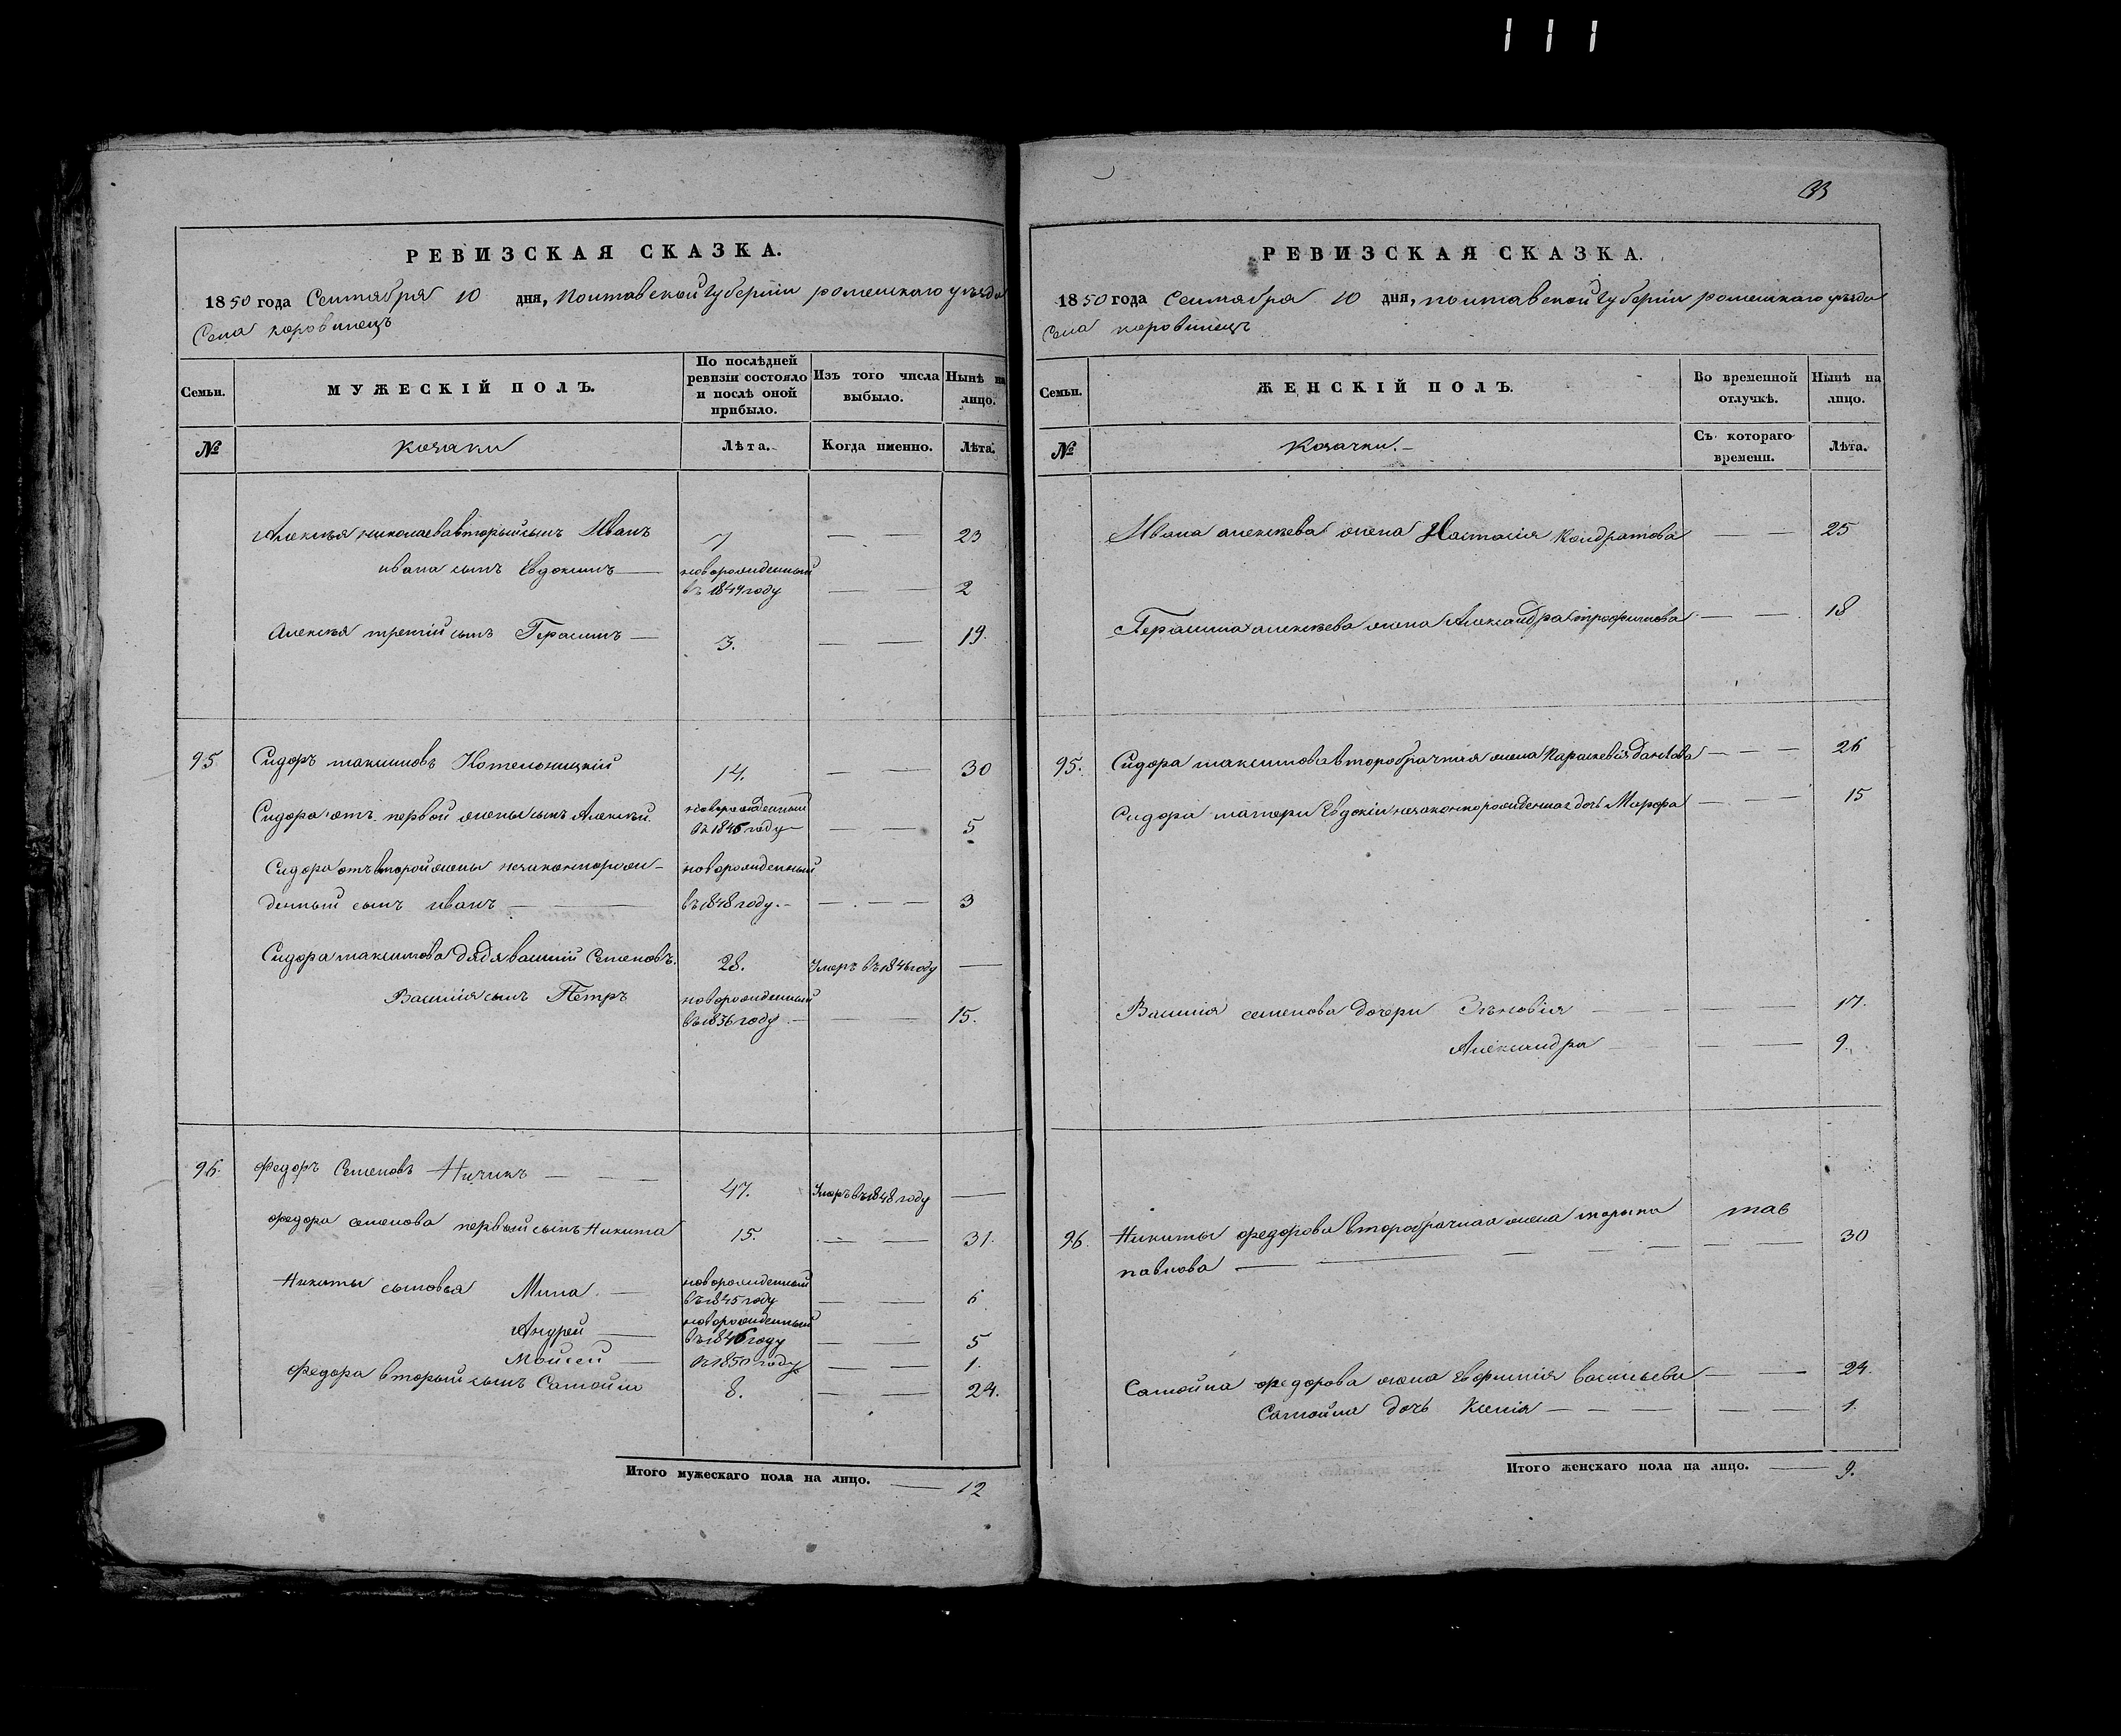 111
РЕВИЗСКАЯ СКАЗКА.
1850 года Сентября 10 дня, Полтавской губерніи роменскаго уѣзда
Села коровинецъ
Семьи. МУЖЕСКІЙ ПОЛЪ. По послѣдней ревизіи состояло и послѣ оной прибыло. Изъ того числа выбыло. Нынѣ на лицо.
№ Козаки Лѣта. Когда именно. Лѣта.
Алексѣя николаева вторый сынъ Иванъ 7 — — 23
ивана сынъ Евдокимъ — новорожденный
въ 1849 году — — 2
Алексѣя третій сынъ Герасимъ — 3. — — 19.
95 Сидоръ максимовъ 14. — — 30
Сидора отъ первой жены сынъ Алексѣй. новорожденный
въ 1846 году — — — 5
Сидора отъ второй жены незаконнорож- новорожденный
денный сынъ иванъ — — въ 1848 году. — — — 3
Сидора максимова дядя василій Семеновъ. 28. Умеръ въ 1846 году —
Василія сынъ Петръ новорожденный
въ 1836 году — — — 15.
96. Федоръ Семеновъ Ничикъ — — — 47. Умеръ въ 1848 году —
Федора семенова первый сынъ Никита 15. — — 31.
Никиты сыновья Мина — новорожденный
въ 1845 году — — 6
Андрей — новорожденный
въ 1846 году — — 5
Мойсей — въ 1850 году — — 1.
Федора вторый сынъ Самойло 8. — — 24.
Итого мужескаго пола на лицо. — 12
33
РЕВИЗСКАЯ СКАЗКА.
1850 года Сентября 10 дня, полтавской губерніи роменскаго уѣзда
Села коровинецъ
Семьи. ЖЕНСКІЙ ПОЛЪ. Во временной отлучкѣ. Нынѣ на лицо.
№ Козачки. — Съ котораго времени. Лѣта.
Ивана алексѣева жена Настасія Кондратова — — 25
Герасима алексѣева жена Александра трофимова — — 18
95. Сидора максимова второбрачная жена Параскевія данилова — — — 26
Сидора матери Евдокіи незаконнорожденная дочь Марфа — — — 15
Василія семенова дочери Зѣновія — — — — 17.
Александра — — — 9.
96. Никиты федорова второбрачная жена марына
павлова — — — — — — — 30
Самойла федорова жена Евфимія васильева — — 24.
Самойла дочь Ксенія — — — — — 1.
Итого женскаго пола на лицо. — 9.